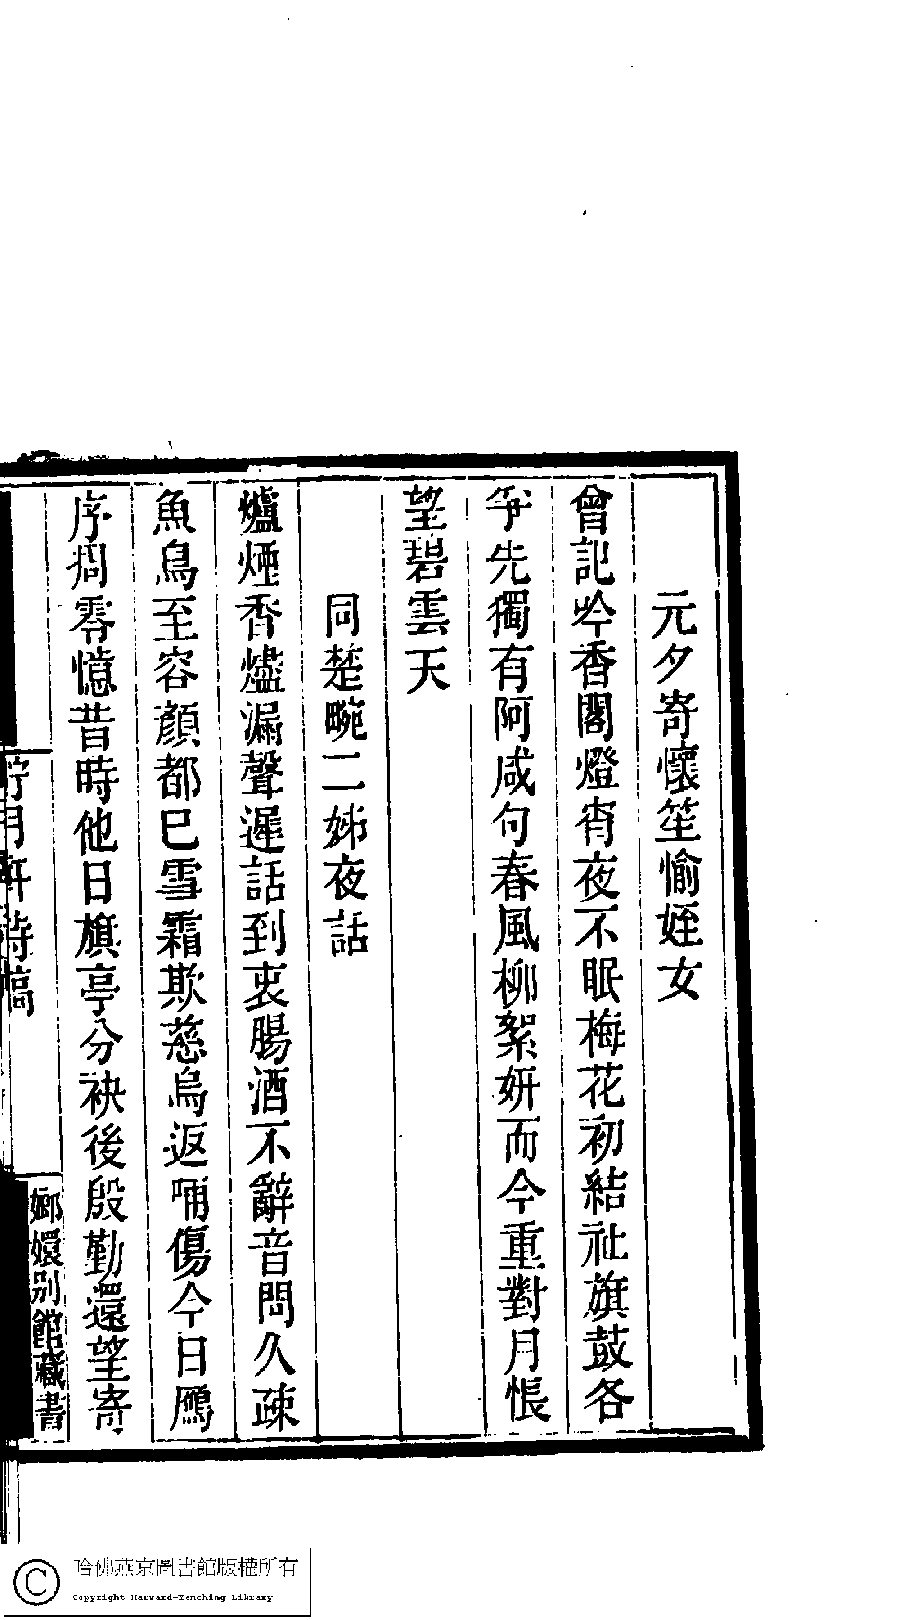 元夕寄懷笙愉姪女
曾記吟香閣燈宵夜不眠梅花初結社旗鼓各
爭先獨有阿咸句春風柳絮妍而今重對月悵
望碧雲天
同楚畹二姊夜話
爐煙香燼漏聲遲話到衷腸酒不辭音問久疎
魚鳥至容顏都已雪霜欺慈烏返哺傷今日鴈
序凋零憶昔時他日旗亭分袂後殷勤還望寄
佇月軒詩稿
嫏嬛別館藏書
哈佛燕京圖書館版權所有
Copyright Harvard-Yenching Library